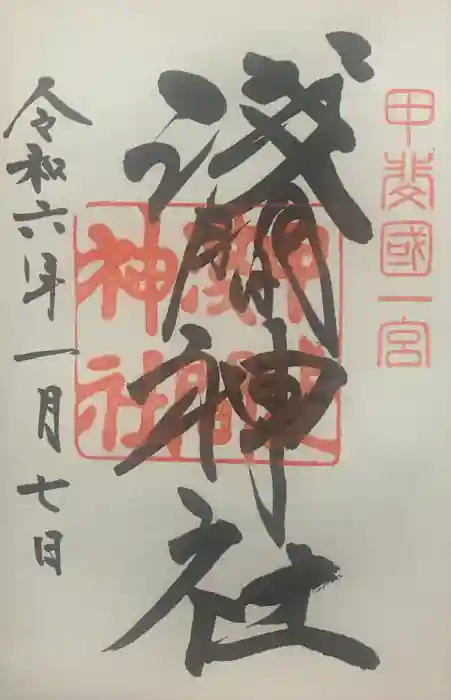 甲斐國一宮
淺間神社
甲斐淺間神社
令和六年一月七日